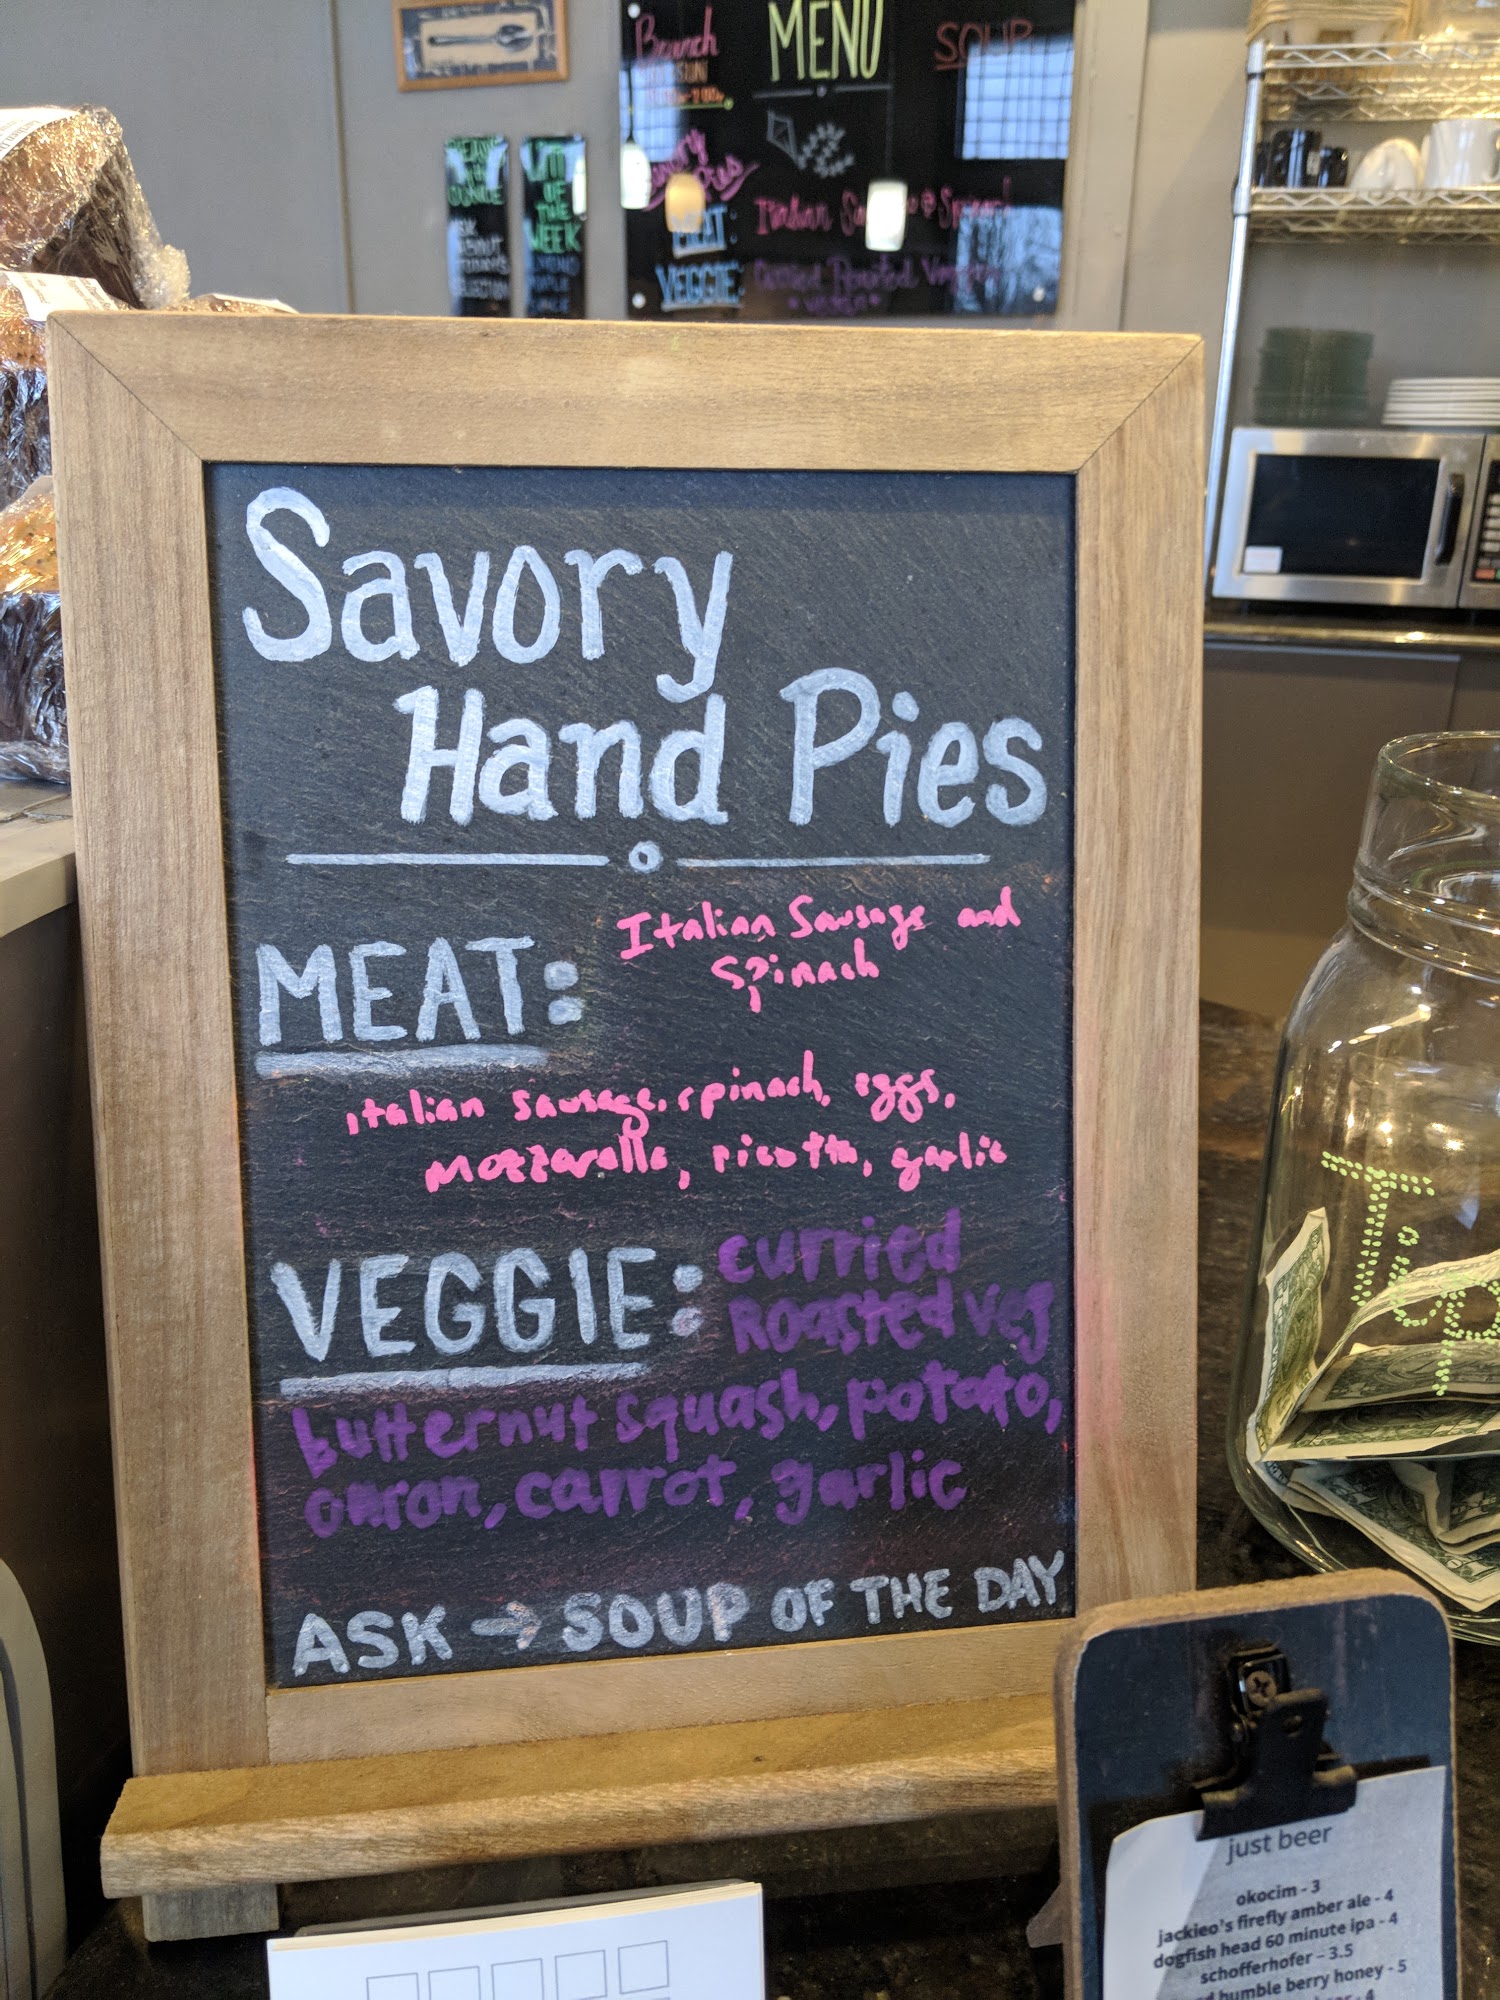 Brunch
MENU
SOUP
Savory
Pies
MEAT:
Italian
VEGGIE:
Curried Roasted Veggies
OF
THE
WEEK
Savory
Hand Pies
MEAT: Italian Sausage and
Spinach
italian sausage, spinach, eggs,
mozzarella, ricotta, garlic
VEGGIE: curried
Roasted Veg
butternut squash, potato,
onion, carrot, garlic
ASK → SOUP OF THE DAY
Tips
just beer
okocim - 3
jackieo's firefly amber ale - 4
dogfish head 60 minute ipa - 4
schofferhofer - 3.5
humble berry honey - 5
- 4